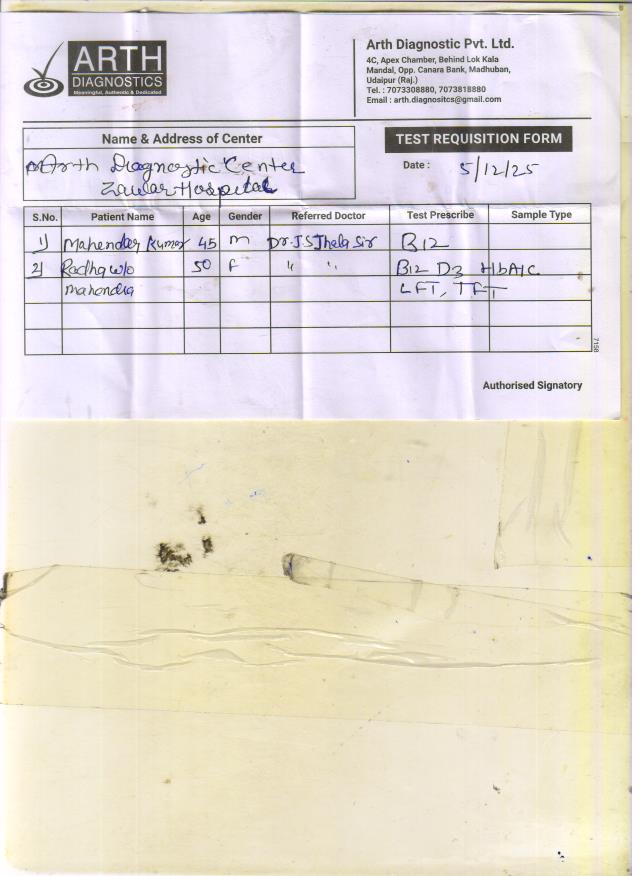 ARTH
DIAGNOSTICS
Meaningful, Authentic & Dedicated
Arth Diagnostic Pvt. Ltd.
4C, Apex Chamber, Behind Lok Kala
Mandal, Opp. Canara Bank, Madhuban,
Udaipur (Raj.)
Tel. : 7073308880, 7073818880
Email : arth.diagnositcs@gmail.com
Name & Address of Center
Arth Diagnostic Center
Hospital
TEST REQUISITION FORM
Date : 5/12/25
S.No. Patient Name Age Gender Referred Doctor Test Prescribe Sample Type
1) Mahendar Kumar 45 m Dr. J.S Sir B12
2) Radha w/o 50 f " " B12 D3 HbA1C
mahendra LFT, TFT
7150
Authorised Signatory